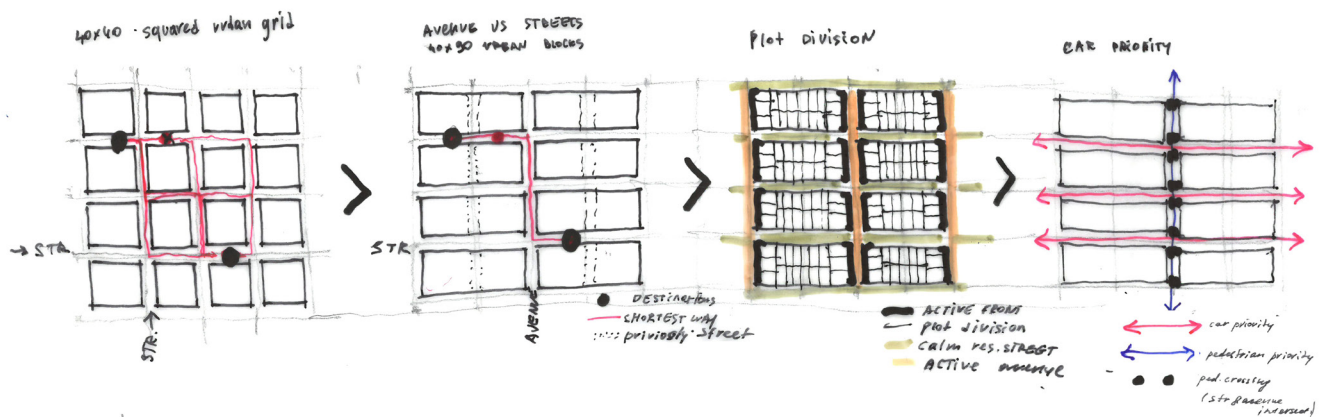 40x40 · squared urban grid
→ STR.
STR. →
AVENUE VS STREETS
40x90 URBAN BLOCKS
STR.
AVENUE
DESTINATIONS
SHORTEST WAY
previosly street
PLOT DIVISION
ACTIVE FRONT
Plot division
Calm res. STREET
ACTIVE avenue
CAR PRIORITY
car priority
pedestrian priority
ped. crossing
(str & avenue
intersect)